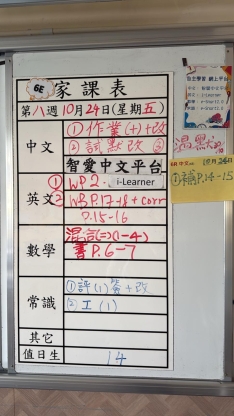 6E 家課表
第八週10月24日(星期五)
中文 ①作業(十)+改
②試點改 ③溫默
智愛中文平台
英文 ① WP.2 i-Learner
② WB P.17-18 + corr
P.15-16
數學 混詥(二)(1-4)
書P.6-7
常識 ①評(1)簽+改
②工(1)
其它
值日生 14
自主學習 網上平台
10月24日
①補P.14-15